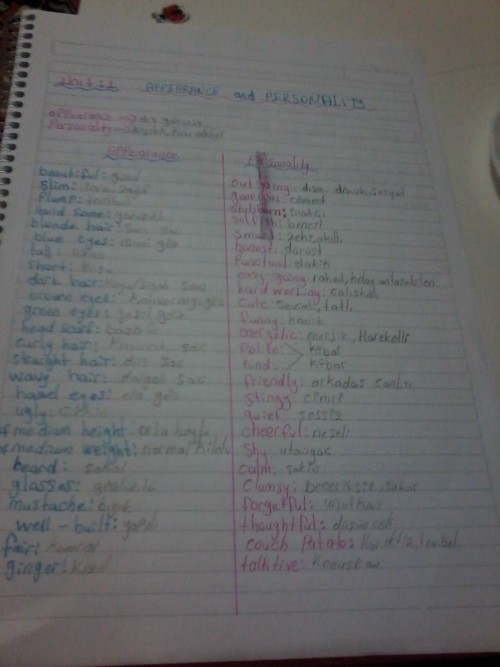 Unit 1 APPEARANCE and PERSONALITY
appearance → dış görünüş
Personality → kişilik, karakter
appearance
beautiful: güzel
slim: ince, zayıf
Plump:
hand some: yakışıklı
blonde hair: sarı saç
blue eyes: mavi göz
tall: uzun
short: kısa
dark hair: koyu/siyah saç
brown eyes: kahverengi göz
green eyes: yeşil göz
head scarf:
curly hair: kıvırcık saç
straight hair: düz saç
wavy hair: dalgalı saç
hazel eyes: ela göz
ugly: çirkin
of medium height: orta boylu
of medium weight: normal kilolu
beard: sakal
glasses: gözlüklü
mustache: bıyık
well-built: yapılı
fair: kumral
ginger: kızıl
Personality
outgoing: dışa dönük, sosyal
generous: cömert
stubborn: inatçı
selfish: bencil
smart: zeki, akıllı
honest: dürüst
Punctual: dakik
easy-going: rahat, kolay anlaşılan
hard working: çalışkan
cute: sevimli, tatlı
funny: komik
energetic: enerjik, Hareketli
Polite: kibar
kind: kibar
friendly: arkadaş canlısı
stingy: cimri
quiet: sessiz
cheerful: neşeli
shy: utangaç
calm: sakin
Clumsy: beceriksiz, sakar
forgetful: unutkan
thoughtful: düşünceli
couch Potato: tembel
talktive: Konuşkan